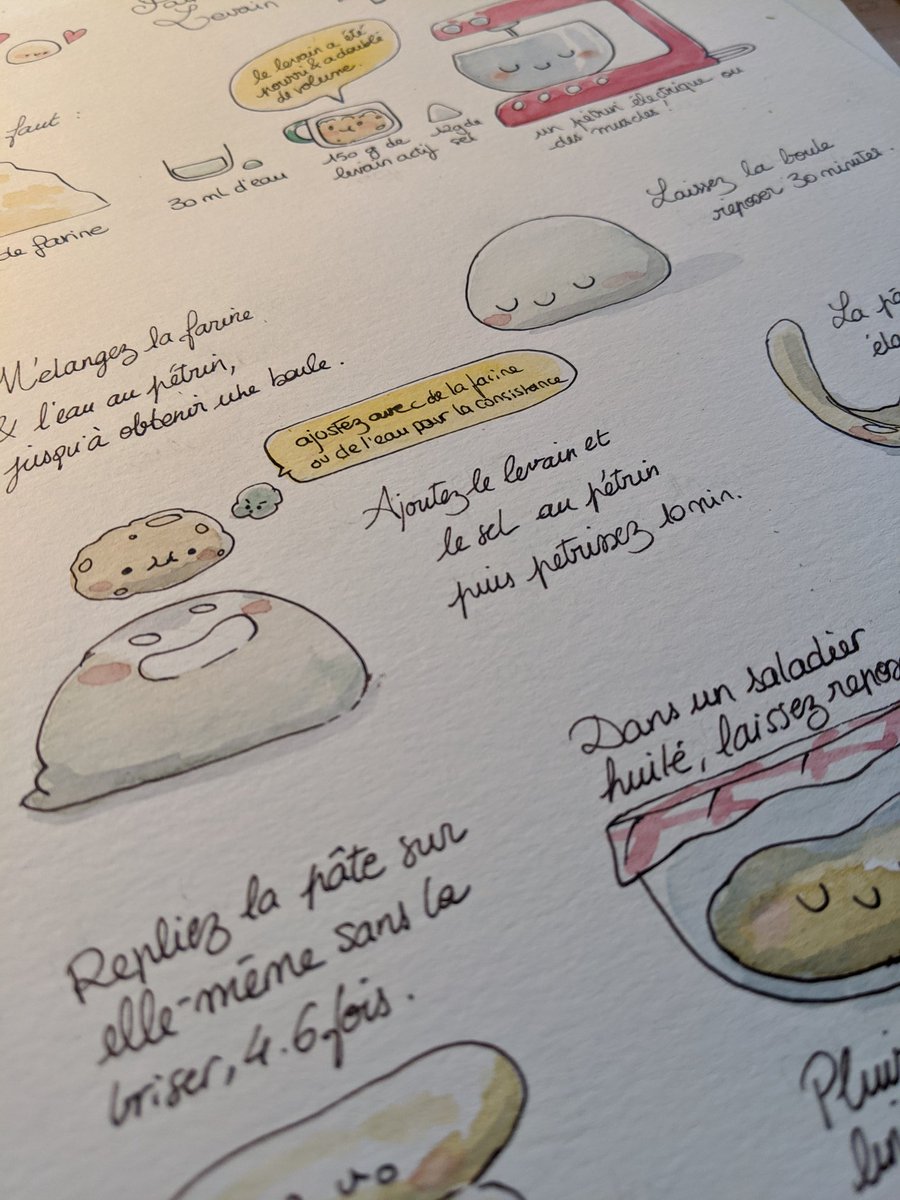 Levain
faut :
le levain a été
nourri & a doublé
de volume.
de farine
30 ml d'eau
150 g de
levain actif
12g de
sel
un pétrin électrique ou
des muscles !
Mélangez la farine
& l'eau au pétrin,
jusqu'à obtenir une boule.
Laissez la boule
reposer 30 minutes.
ajustez avec de la farine
ou de l'eau pour la consistance
Ajoutez le levain et
le sel au pétrin
puis pétrissez 10 min.
La
Dans un saladier
huilé, laissez
Repliez la pâte sur
elle-même sans la
briser, 4.6 fois.